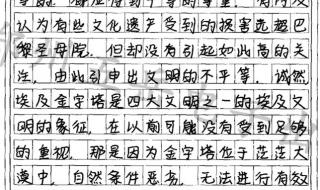 认为有些文化遗产受到的损害远超巴
黎圣母院，但却没有引起如此高的关
注，由此引申出文明的不平等，诚然
埃及金字塔是四大文明之一的埃及文
明的象征，在以前可能没有受到足够
的重视，那是因为金字塔位于茫茫大
漠中，自然条件恶劣，无法进行有效